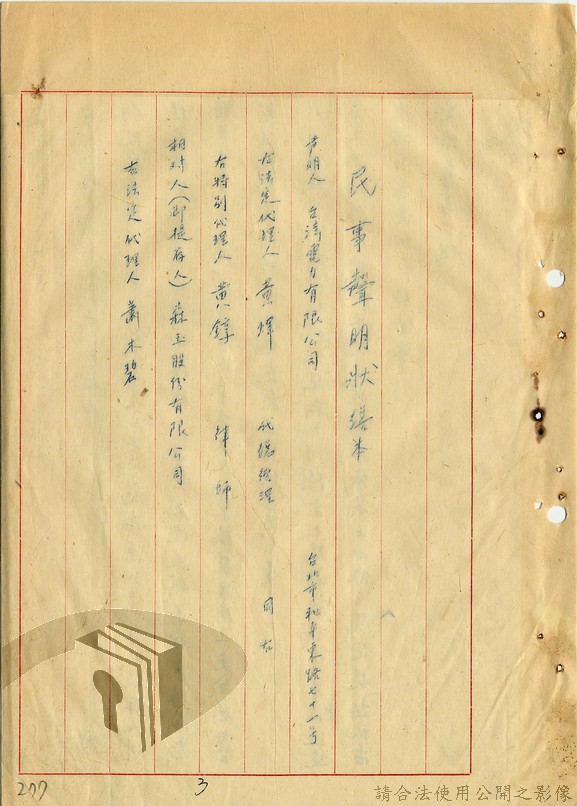 民事聲明狀 繕本
声明人 台湾電力有限公司 台北市和平東路七十一号
右法定代理人 黃煇 代總經理 同右
右特別代理人 黃錞 律師
相对人（即提存人） 森玉股份有限公司
右法定代理人 蕭木碧
3
207
請合法使用公開之影像